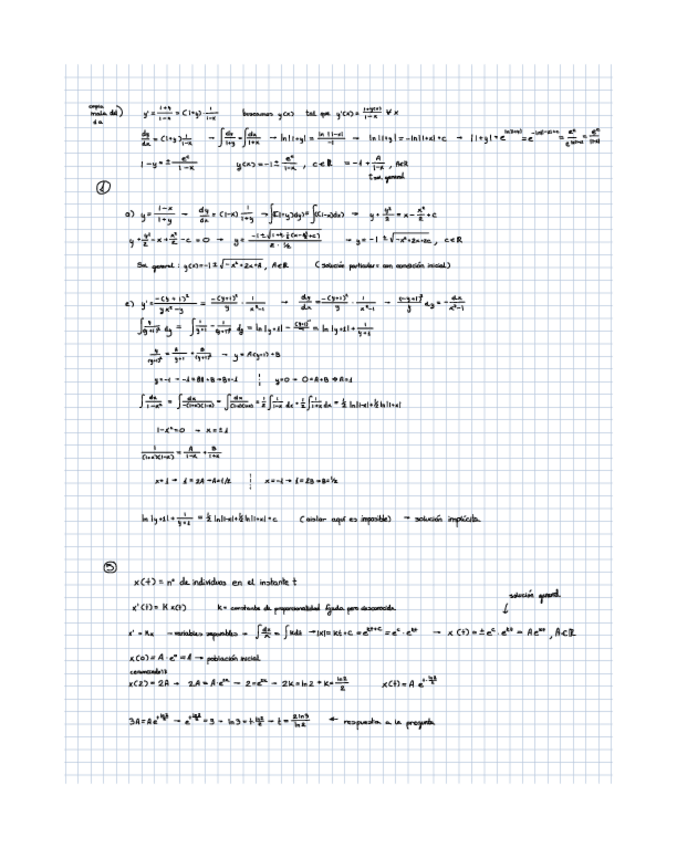 copia mala del da) y' = (1+y)/(1-x) = (1+y) · 1/(1-x) buscamos y(x) tal que y'(x) = (1+y(x))/(1-x) ∀x
dy/dx = (1+y) 1/(1-x) → ∫ dy/(1+y) = ∫ dx/(1-x) → ln|1+y| = ln|1-x|/-1 → ln|1+y| = -ln|1-x| + c → |1+y| =
1-y = ± e^c/(1-x) y(x) = -1 ± e^c/(1-x), c∈ℝ = -1 + A/(1-x), A∈ℝ
sol. general
①
a) y = (1-x)/(1+y) → dy/dx = (1-x) 1/(1+y) → ∫(1+y)dy = ∫(1-x)dx → y + y²/2 = x - x²/2 + c
y + y²/2 - x + x²/2 - c = 0 → → y = -1 ± √(-x²+2x+2c), c∈ℝ
Sol. general: y(x) = -1 ± √(-x²+2x+A), A∈ℝ (solución particular = con condición inicial)
e) y' = -(y+1)²/(yx²-y) = -(y+1)²/y · 1/(x²-1) → dy/dx = -(y+1)²/y · 1/(x²-1) →
∫ y/(y+1)² dy = ∫ 1/(y+1) - 1/(y+1)² dy = = ln|y+1| + 1/(y+1)
y/(y+1)² = A/(y+1) + B/(y+1)² → y = A(y+1)+B
y=-1 → B=-1 y=0 → 0=A+B → A=1
∫ dx/(1-x²) = = 1/2 ∫ 1/(1-x) dx + 1/2 ∫ 1/(1+x) dx =
1-x²=0 → x=±1
1/((1+x)(1-x)) = A/(1-x) + B/(1+x)
x=1 → 1=2A → A=1/2 x=-1 → 1=2B → B=1/2
ln|y+1| + 1/(y+1) = 1/2 ln|1-x| + 1/2 ln|1+x| + c (aislar aquí es imposible) → solución implícita
③
x(t) = nº de individuos en el instante t
solución general
x'(t) = K x(t) k = constante de proporcionalidad fijada pero desconocida
x' = Kx → variables separables → ∫ dx/x = ∫ K dt → |x| = e^(kt+c) = e^c · e^(kt) → x(t) = ± e^c · e^(kt) = Ae^(kt), A∈ℝ
x(0) = A · e⁰ = A → población inicial
x(2) = 2A → 2A = A·e^(2k) → 2 = e^(2k) → 2K = ln2 → K = ln2/2 x(t) = A e^(t·ln2/2)
3A = Ae^(t·ln2/2) → e^(t·ln2/2) = 3 → ln3 = t·ln2/2 → t = 2ln3/ln2 ← respuesta a la pregunta